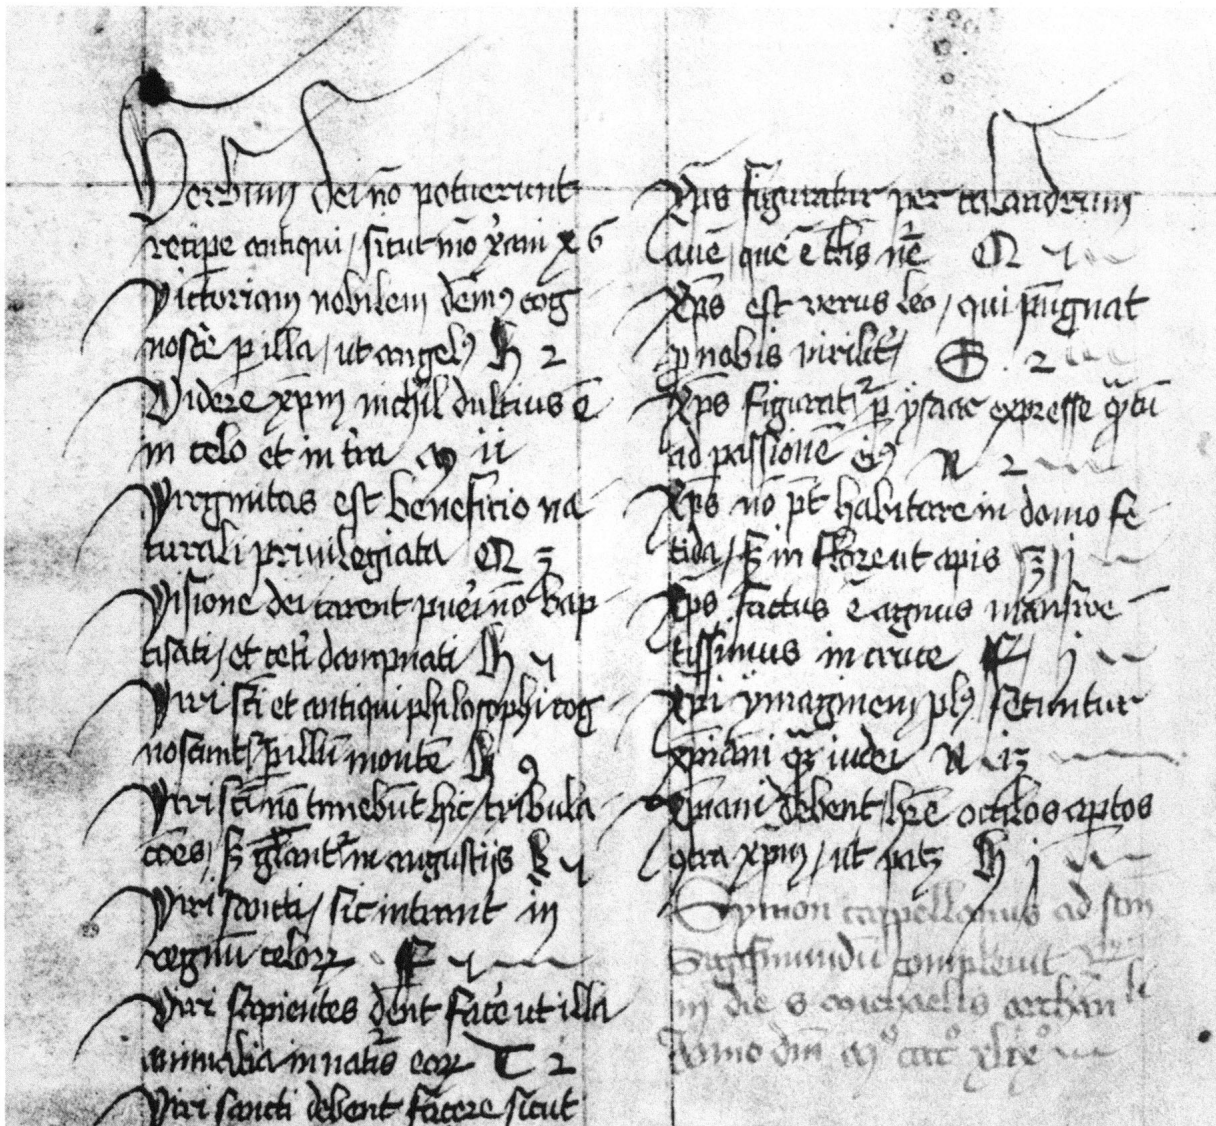 Verbum dei nō potuerunt
recipe antiqui / sicut mō x̄ani x 6
Victoriam nobilem dem9 cog
noscē p illa / ut angel9 h 2
Videre xp̄m nichil dulcius ē
in celo et in tr̄a m ii
Virginitas est beneficio na
turali privilegiata M 3
Visione dei carent pueri nō bap
tisati / et cet̄i dampnati h y
Viri sc̄i et antiqui philosophi cog
noscunt p illū montē h 9
Viri sc̄i nō timebūt hic / tribula
cōes / sz gl̄ant in angustijs k y
Viri sancti / sic intrant in
regnū celorꝝ F y
Viri sapientes dn̄t facē ut illa
animalia in natis eoꝝ T 2
Viri sancti debent facere sicut
Xp̄us figuratur per calandrum
avē / que ē tl̄is nr̄e M
Xp̄s est verus leo / qui pugnat
p nobis virilit̄ S . 2
Xp̄s figurat p ysaac expresse qtū
ad passionē ei9 N 2
Xp̄s nō pt̄ habitare in domo fe
tida / sz in flore ut apis z j
Xp̄s factus ē agnus mansue
tissimus in cruce F j
Xp̄i ymaginem pl9 secuntur
xp̄iani qz iudei N 12
Xp̄iani debent hr̄e oculos aptos
9tra xp̄m / ut patz h j
Symon cappellanus ad sc̄m
Sigismundū complevit
in die s michaelis archan
Anno dm̄ mº cccº xlixº